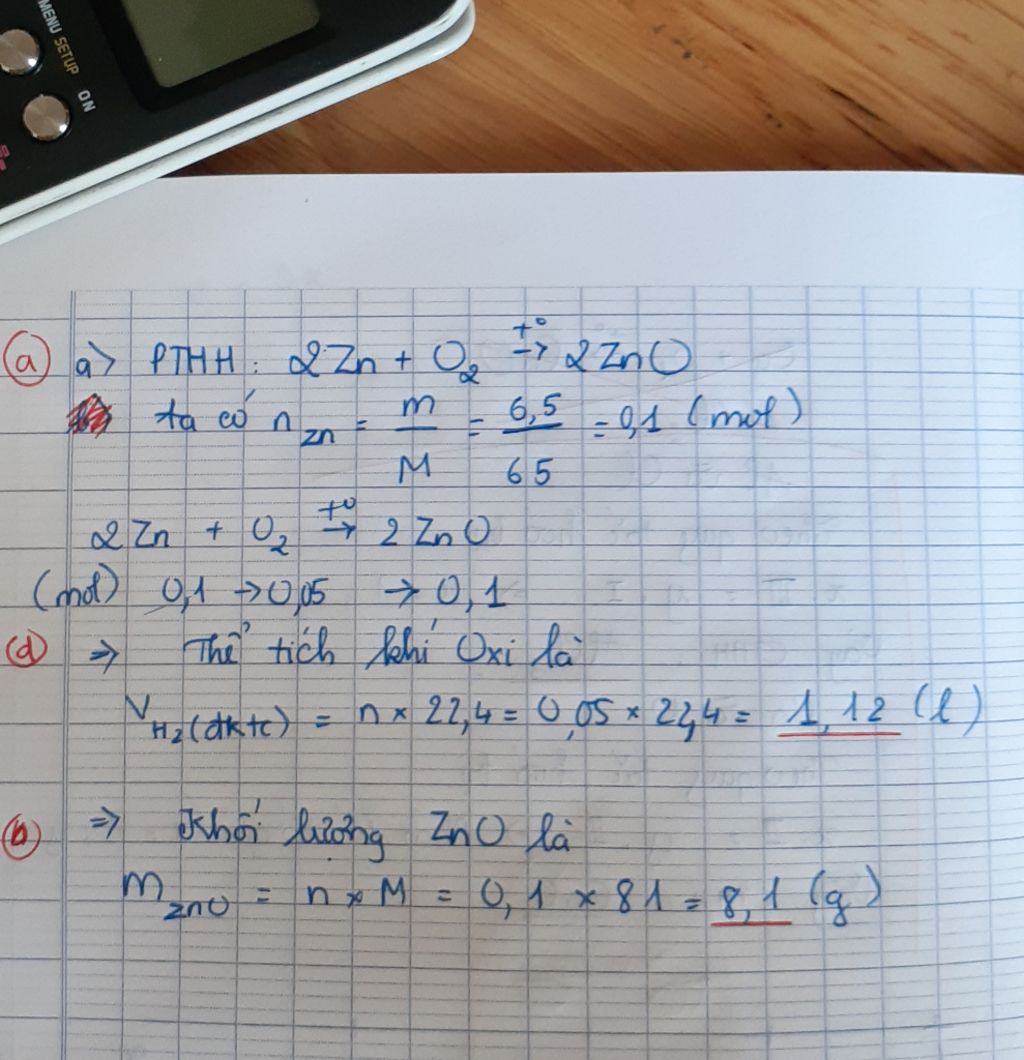 MENU SETUP ON
a a> PTHH: 2Zn + O₂ t° → 2ZnO
ta có n Zn = m/M = 6,5/65 = 0,1 (mol)
2Zn + O₂ t° → 2ZnO
(mol) 0,1 → 0,05 → 0,1
d ⇒ Thể tích khí Oxi là
V H₂(đktc) = n × 22,4 = 0,05 × 22,4 = 1,12 (l)
b ⇒ Khối lượng ZnO là
m ZnO = n × M = 0,1 × 81 = 8,1 (g)